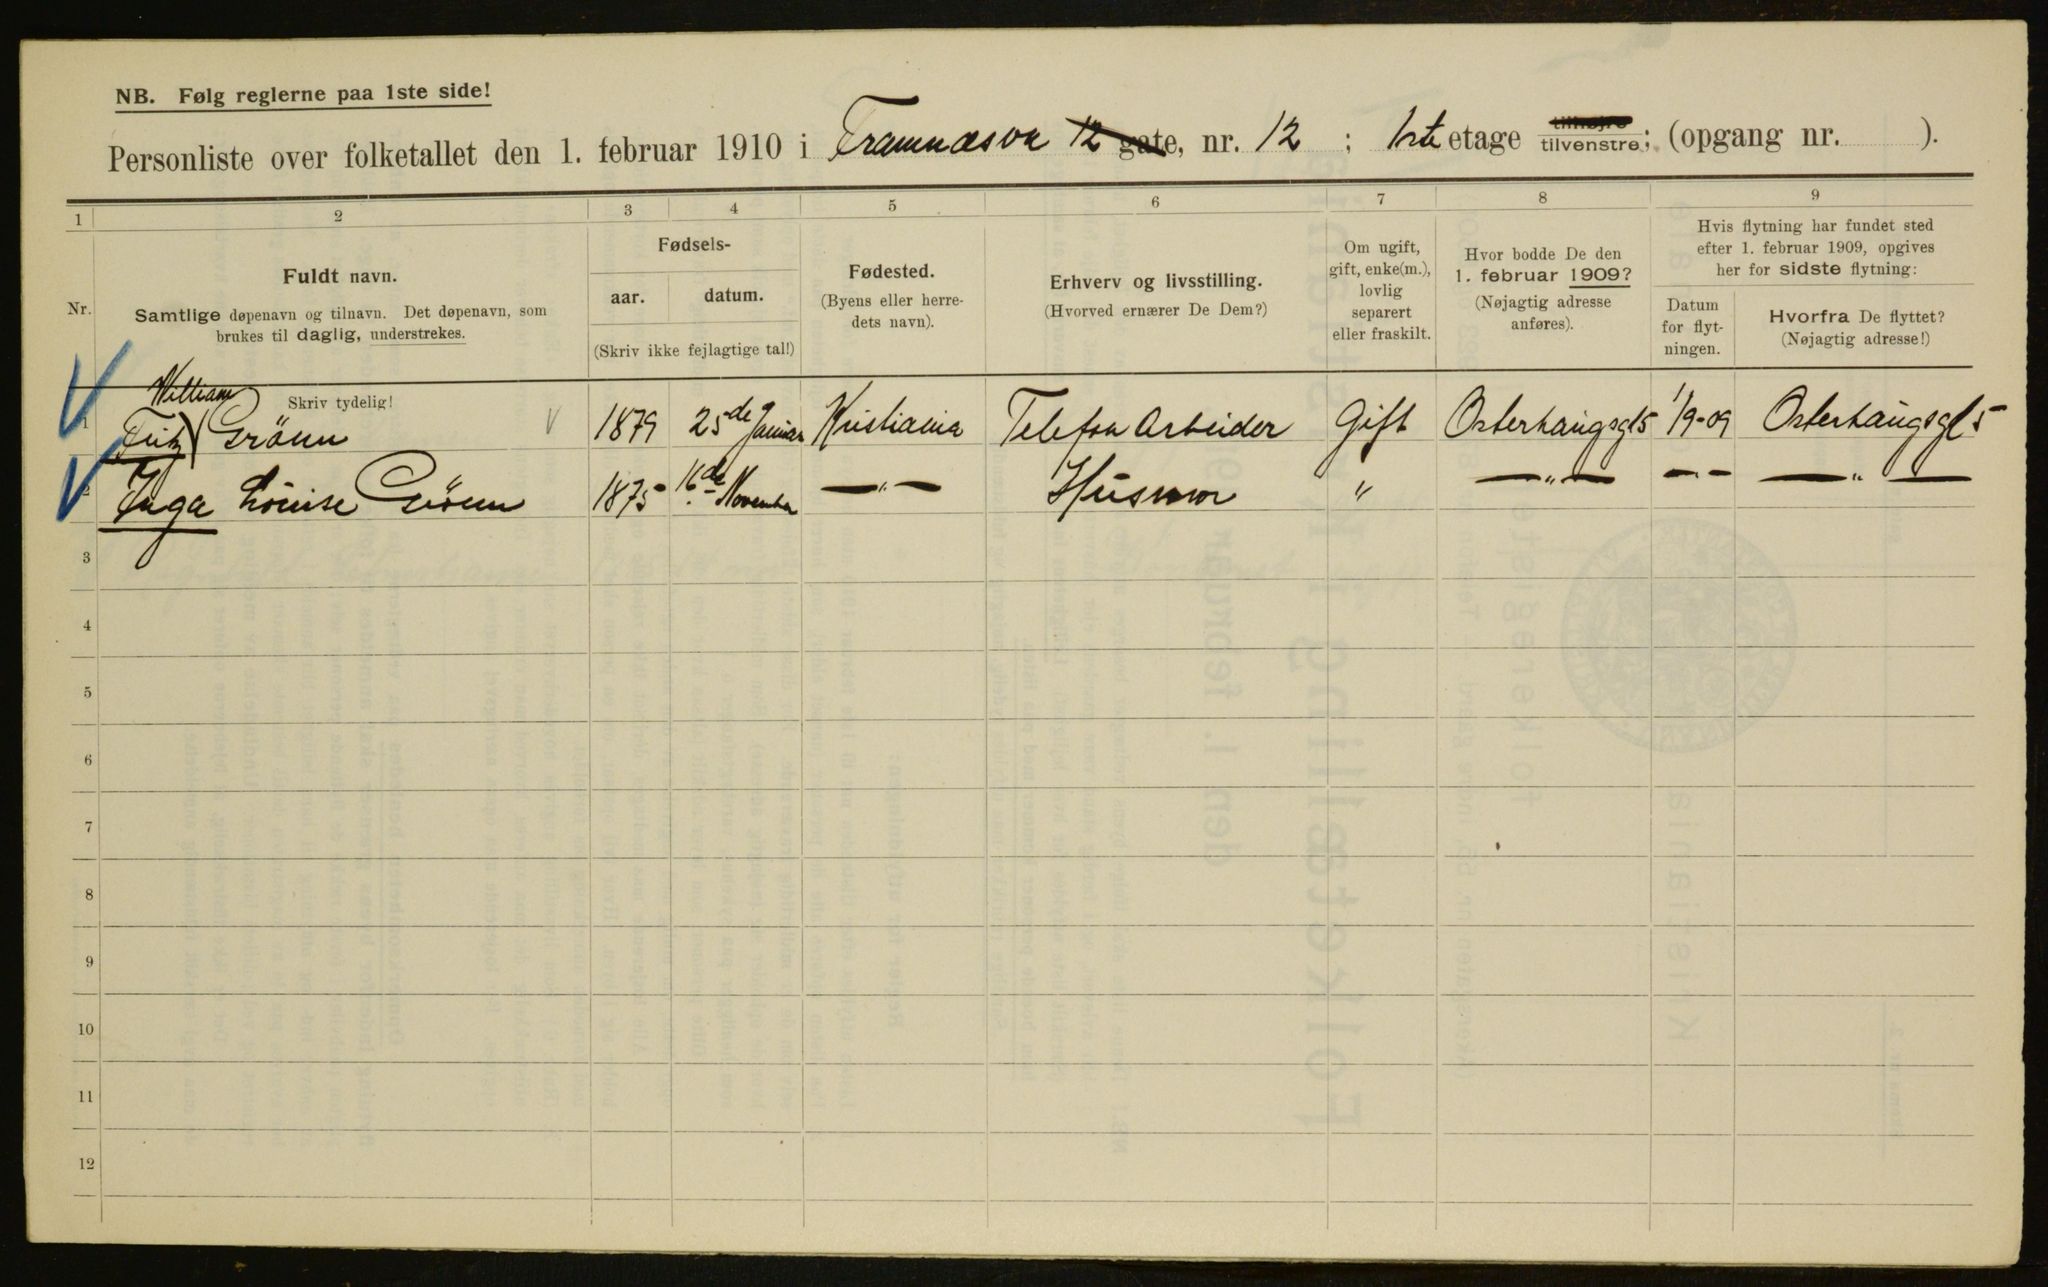 NB. Følg reglerne paa 1ste side!
Personliste over folketallet den 1. februar 1910 i Framnæsvn 12 gate, nr. 12 ; 1ste etage tilhøjre tilvenstre; (opgang nr. ).
1 2 3 4 5 6 7 8 9
Nr.
Fuldt navn.
Samtlige døpenavn og tilnavn. Det døpenavn, som
brukes til daglig, understrekes.
Fødsels-
aar. datum.
(Skriv ikke fejlagtige tal!)
Fødested.
(Byens eller herre-
dets navn).
Erhverv og livsstilling.
(Hvorved ernærer De Dem?)
Om ugift,
gift, enke(m.),
lovlig
separert
eller fraskilt.
Hvor bodde De den
1. februar 1909?
(Nøjagtig adresse
anføres).
Hvis flytning har fundet sted
efter 1. februar 1909, opgives
her for sidste flytning:
Datum
for flyt-
ningen.
Hvorfra De flyttet?
(Nøjagtig adresse!)
Skriv tydelig!
William
1 Fritz Grönn 1879 25de Januar Kristiania Telefon Arbeider Gift Osterhaugsgt 5 1/9-09 Osterhaugsgt 5
2 Inga Louise Grönn 1875 16de November —„— Husmor „ —„— —„— —„—
3
4
5
6
7
8
9
10
11
12